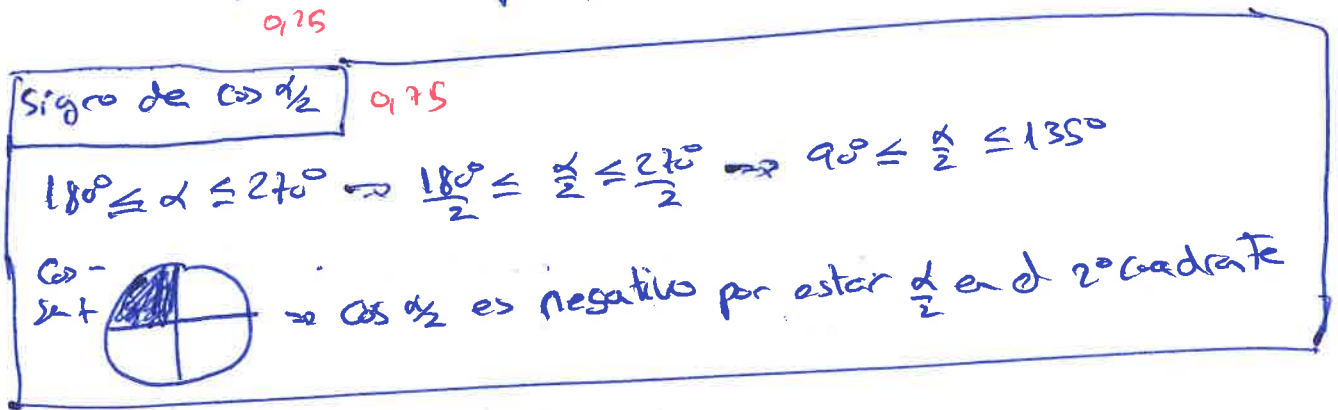 0,25
Signo de cos α/2 0,75
180° ≤ α ≤ 270° → 180°/2 ≤ α/2 ≤ 270°/2 → 90° ≤ α/2 ≤ 135°
cos -
sen +
⇒ cos α/2 es negativo por estar α/2 en el 2° cuadrante